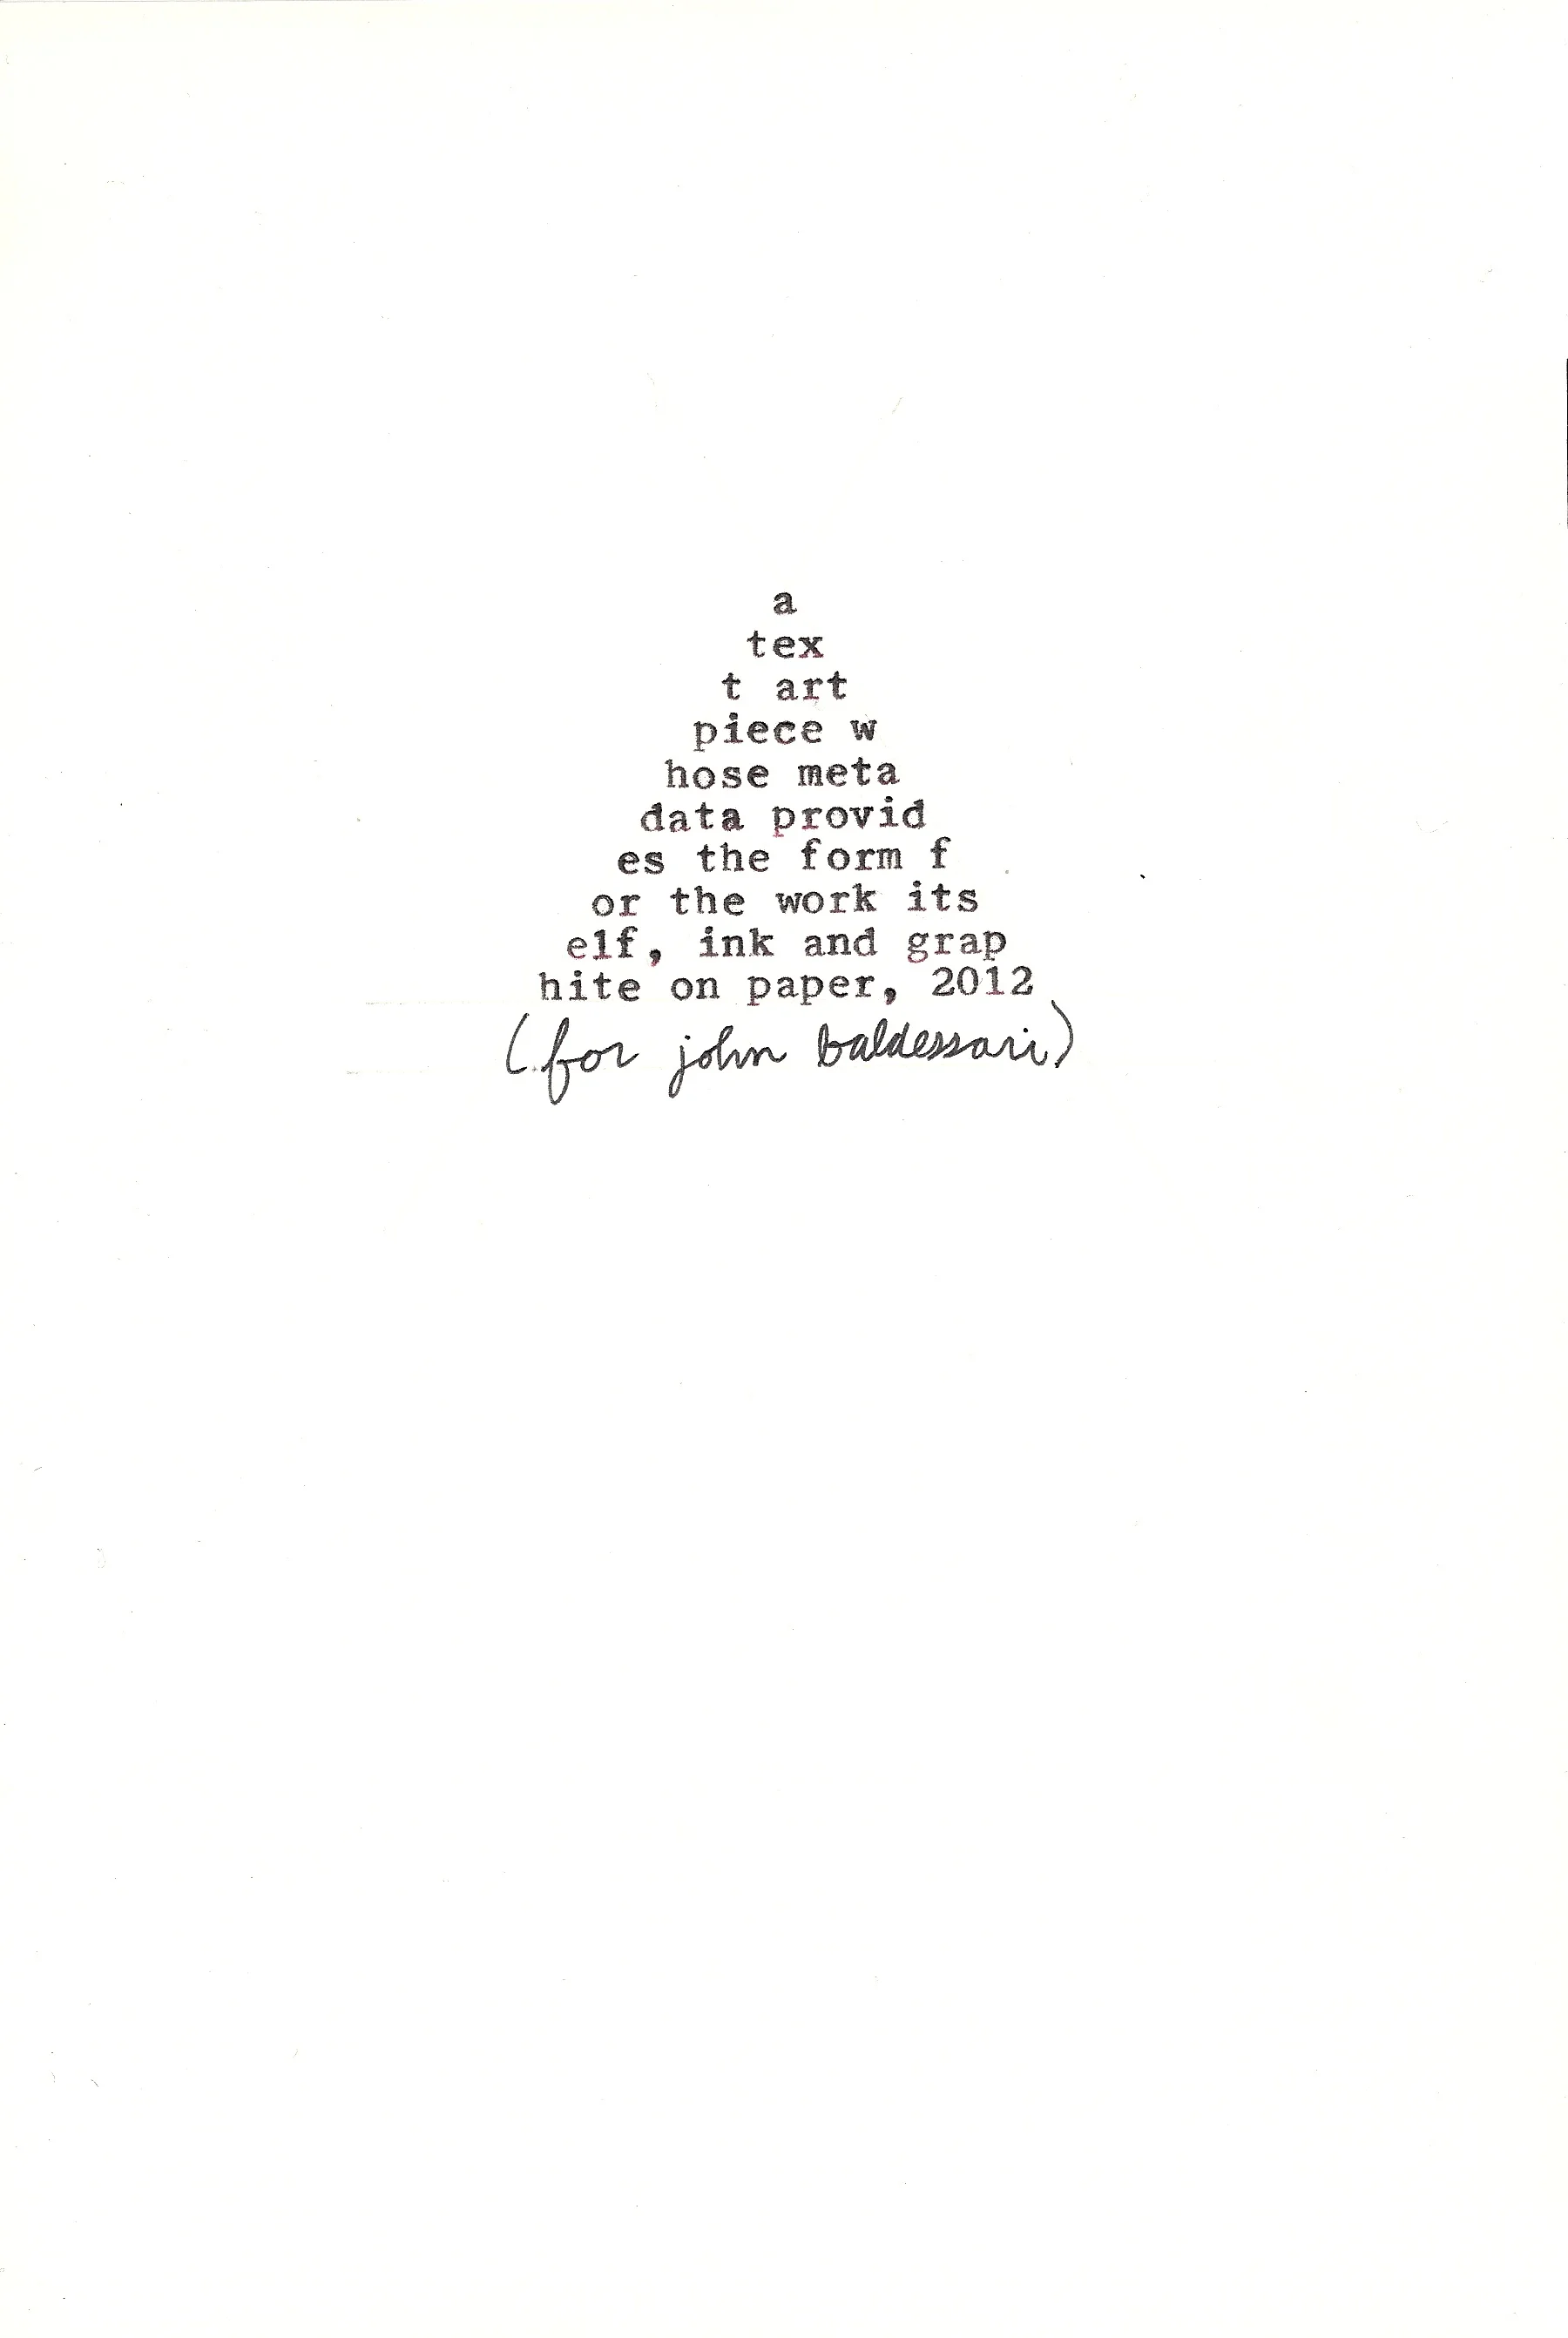 a
tex
t art
piece w
hose meta
data provid
es the form f
or the work its
elf, ink and grap
hite on paper, 2012
(for john baldessari)